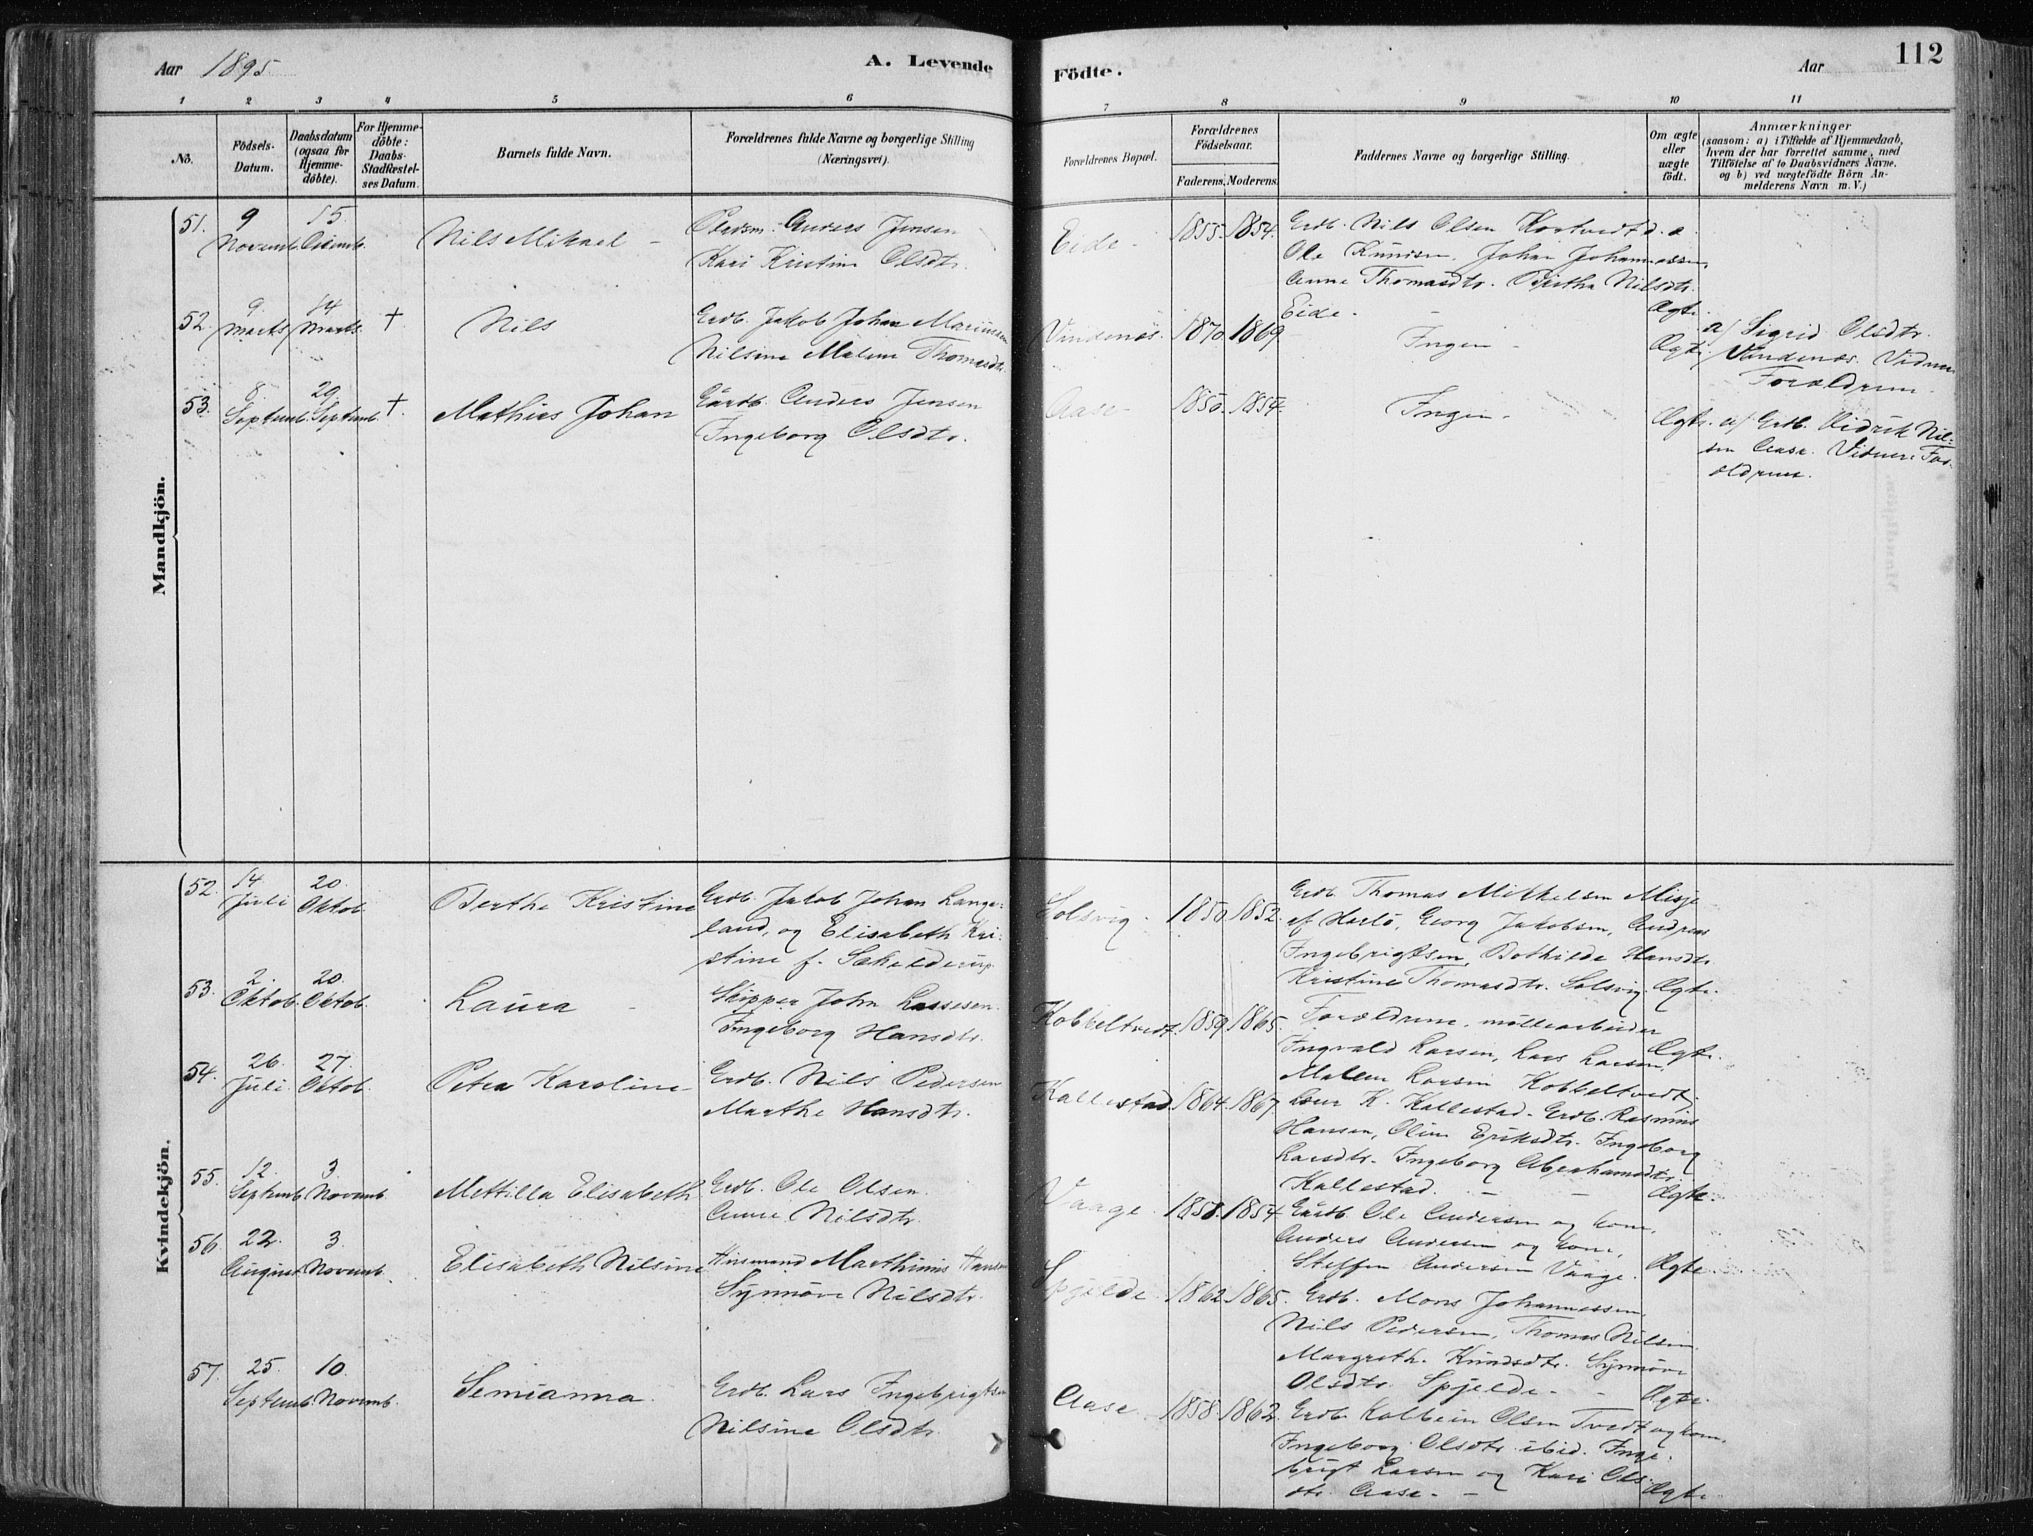 Aar 1895
A. Levende
Födte.
Aar
112
1 2 3 4 5 6 7 8 9 10 11
Nô.
Födsels-
Datum.
Daabsdatum
(ogsaa for
Hjemme-
döbte).
For Hjemme-
döbte:
Daabs-
Stadfæstel-
ses Datum.
Barnets fulde Navn.
Forældrenes fulde Navne og borgerlige Stilling
(Næringsvei).
Forældrenes Bopæl.
Forældrenes
Födselsaar.
Faderens, Moderens.
Faddernes Navne og borgerlige Stilling.
Om ægte
eller
uægte
födt.
Anmærkninger
(saasom: a) i Tilfælde af Hjemmedaab,
hvem der har forrettet samme, med
Tilföielse af to Daabsvidners Navne,
og b) ved uægtefödte Börn An-
melderens Navn m. V.)
Mandkjön.
51. 9 15
Novemb. Nils Mikael - Anders Jensen
Kari Kristine Olsdtr.
Eide - 1855. 1854. Grdb. Nils Olsen
Ole Knudsen, Johan Johannessen,
Anne Thomasdtr. Bertha Nilsdtr.
Eide. - Ægte.
52. 9 14
Marts Marts. † Nils Grdb. Jakob Johan
Nilsine Malene Thomasdtr.
Vindenæs. 1870. 1869. Ingen - Ægte. a/ Sigrid Olsdtr.
Vindenæs.
Forældrene.
53. 8. 29
Septemb. Septemb. †. Mathias Johan Gaardb. Anders Jensen
Ingeborg Olsdtr.
Aase - 1850. 1854. Ingen - Ægte. a/ Grdb. Didrik Nil-
sen Aase. Vidner: For-
ældrene.
Kvindekjön.
52. 14 20
Juli Oktob. Berthe Kristine Grdb. Jakob Johan Lange-
land, og Elisabeth Kri-
stine f.
Solsvig - 1850. 1852. Grdb. Thomas Mikkelsen Misje
af Herlö, Georg Jakobsen, Andreas
Ingebrigtsen, Bothilde Hansdtr.
Kristine Thomasdtr. Solsvig. Ægte.
53. 2. 20
Oktob. Oktob. Laura - Skipper John Lassesen
Ingeborg Hansdtr.
Kobbeltvedt. 1859. 1865. Forældrene, möllearbeider
Ingvald Larsen, Lars Larsen, Ægte.
Malene Larsen Kobbeltvedt,
54. 26. 27.
Juli. Oktob. Petra Karoline Grdb. Nils Pedersen
Marthe Hansdtr.
Kallestad 1864. 1867. K. Kallestad - Grdb. Rasmus
Hansen, Oline Eriksdtr. Ingeborg
Larsdtr. Ingeborg Abrahamsdtr.
Kallestad. - - Ægte.
55. 12. 3
Septemb. Novemb. Mettilla Elisabeth Grdb. Ole Olsen.
Anne Nilsdtr.
Vaage. 1858. 1854. Gaardb. Ole Andersen og kone,
Anders Andersen og kone,
Steffen Andersen Vaage. Ægte
56. 22. 3.
August. Novemb. Elisabeth Nilsine Husmand Marthinus Hansen
Synnöve Nilsdtr.
Spjelde 1862. 1865. Grdb. Mons Johannessen
Nils Pedersen, Thomas Nilsen
Margreth Knudsdtr. Synnöve
Olsdtr. Spjelde - - Ægte.
57. 25. 10.
Septemb. Novemb. Semianna. Grdb. Lars Ingebrigtsen
Nilsine Olsdtr.
Aase. 1858. 1862. Grdb. Kolbein Olsen Tvedt og kone.
Ingeborg Olsdtr. ibid. Inge-
brigt Larsen og Kari Ols-
dtr. Aase. - Ægte.